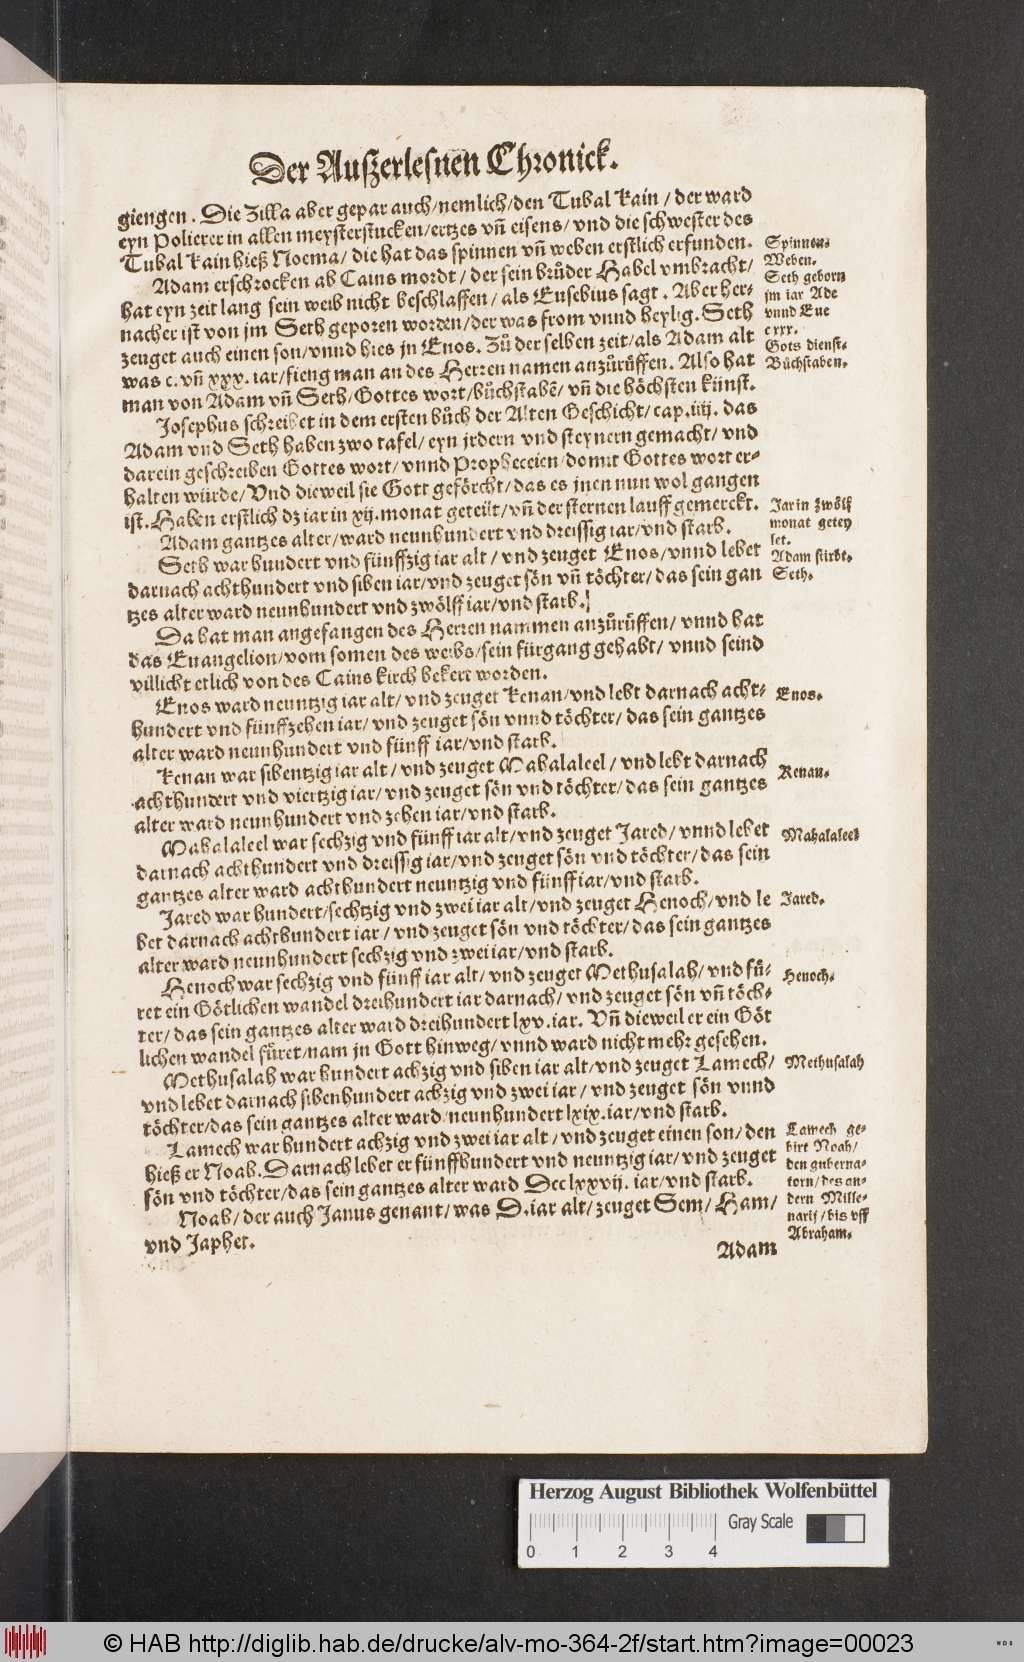 Der Außerlesnen Chronick.
giengen. Die Zilla aber gepar auch/nemlich/den Tubal Kain/der ward
eyn Polierer in allen meysterstucken/ertzes vñ eisens/vnd die schwester des
Tubal Kain hieß Noema/die hat das spinnen vñ weben erstlich erfunden.
Adam erschrocken ab Cains mordt/der sein brůder Habel vmbracht/
hat eyn zeit lang sein weib nicht beschlaffen/als Eusebius sagt. Aber her-
nacher ist von jm Seth geporen worden/der was from vnnd heylig. Seth
zeuget auch einen son/vnnd hies jn Enos. Zů der selben zeit/als Adam alt
was c. vñ xxx. iar/fieng man an des Herren namen anzůrůffen. Also hat
man von Adam vñ Seth/Gottes wort/bůchstabẽ/vñ die höchsten künst.
Josephus schreibet in dem ersten bůch der Alten Geschicht/cap.iiij. das
Adam vnd Seth haben zwo tafel/eyn jrdern vnd steynern gemacht/vnd
darein geschreiben Gottes wort/vnnd Propheceien/domit Gottes wort er-
halten würde/Vnd dieweil sie Gott geförcht/das es jnen nun wol gangen
ist. Haben erstlich dz iar in xij. monat geteilt/vñ der sternen lauff gemerckt.
Adam gantzes alter/ward neunhundert vnd dreissig iar/vnd starb.
Seth war hundert vnd fünffzig iar alt/vnd zeuget Enos/vnnd lebet
darnach achthundert vnd siben iar/vnd zeuget sön vñ töchter/das sein gan
tzes alter ward neunhundert vnd zwölff iar/vnd starb.
Da hat man angefangen des Herren nammen anzůrůffen/vnnd hat
das Euangelion/vom somen des weibs/sein fürgang gehabt/vnnd seind
villicht etlich von des Cains kirch bekert worden.
Enos ward neuntzig iar alt/vnd zeuget Kenan/vnd lebt darnach acht-
hundert vnd fünffzehen iar/vnd zeuget sön vnnd töchter/das sein gantzes
alter ward neunhundert vnd fünff iar/vnd starb.
Kenan war sibentzig iar alt/vnd zeuget Mahalaleel/vnd lebt darnach
achthundert vnd viertzig iar/vnd zeuget sön vnd töchter/das sein gantzes
alter ward neunhundert vnd zehen iar/vnd starb.
Mahalaleel war sechzig vnd fünff iar alt/vnd zeuget Jared/vnnd lebet
darnach achthundert vnd dreissig iar/vnd zeuget sön vnd töchter/das sein
gantzes alter ward achthundert neuntzig vnd fünff iar/vnd starb.
Jared war hundert/sechtzig vnd zwei iar alt/vnd zeuget Henoch/vnd le
bet darnach achthundert iar/vnd zeuget sön vnd töchter/das sein gantzes
alter ward neunhundert sechzig vnd zwei iar/vnd starb.
Henoch war sechzig vnd fünff iar alt/vnd zeuget Methusalah/vnd fü-
ret ein Götlichen wandel dreihundert iar darnach/vnd zeuget sön vñ töch-
ter/das sein gantzes alter ward dreihundert lxv. iar. Vñ dieweil er ein Göt
lichen wandel füret/nam jn Gott hinweg/vnnd ward nicht mehr gesehen.
Methusalah war hundert achzig vnd siben iar alt/vnd zeuget Lamech/
vnd lebet darnach sibenhundert achzig vnd zwei iar/vnd zeuget sön vnnd
töchter/das sein gantzes alter ward/neunhundert lxix. iar/vnd starb.
Lamech war hundert achzig vnd zwei iar alt/vnd zeuget einen son/den
hieß er Noah. Darnach lebet er fünffhundert vnd neuntzig iar/vnd zeuget
sön vnd töchter/das sein gantzes alter ward Dcclxxvij. iar/vnd starb.
Noah/der auch Janus genant/was D. iar alt/zeuget Sem/Ham/
vnd Japhet.
Adam
Spinnen.
Weben.
Seth geborn
jm iar Ade
vnnd Eue
cxxx.
Gots dienst.
Bůchstaben.
Jar in zwölf
monat getey
let.
Adam stirbt.
Seth.
Enos.
Kenan.
Mahalaleel
Jared.
Henoch.
Methusalah
Lamech ge-
birt Noah/
den guberna-
torn/des an-
dern Mille-
narij/bis vff
Abraham.
Herzog August Bibliothek Wolfenbüttel
Gray Scale
0 1 2 3 4
© HAB http://diglib.hab.de/drucke/alv-mo-364-2f/start.htm?image=00023